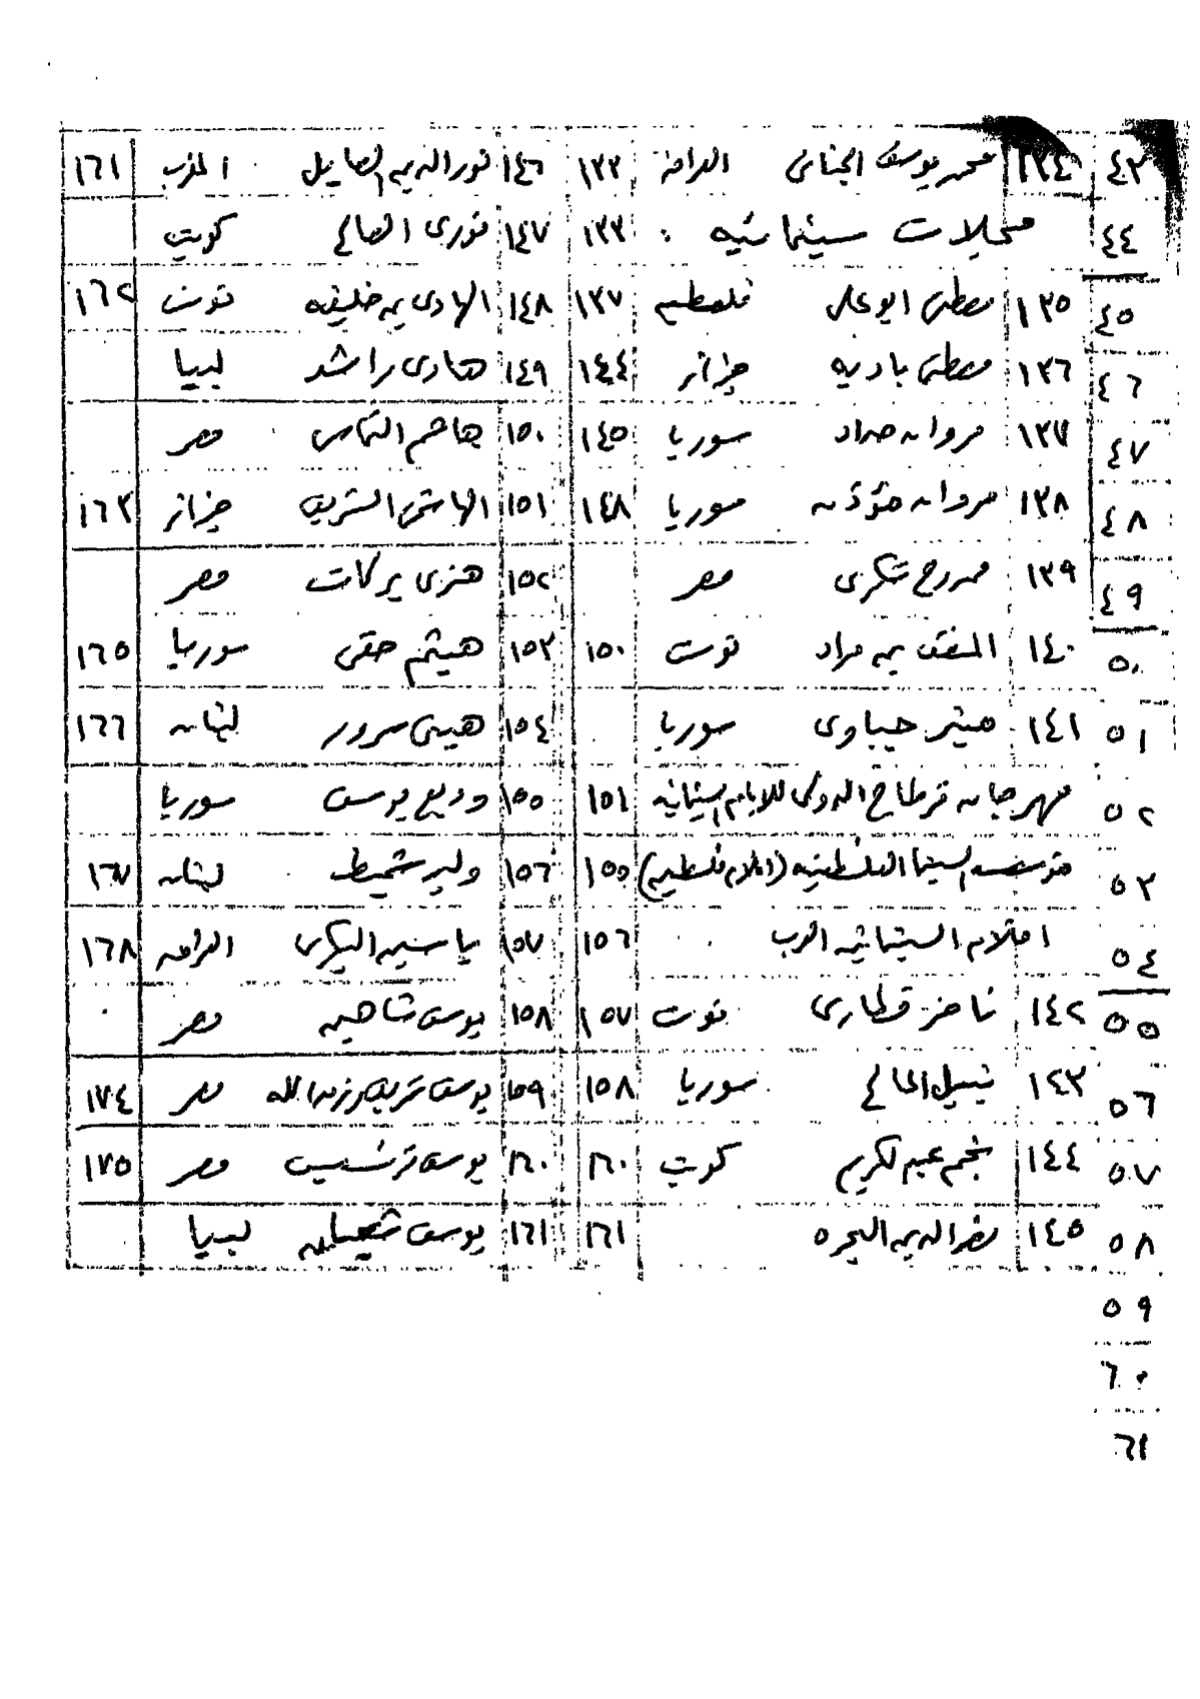 ٤٣ ١٣٤ محمد يوسف الجنابى العراق ١٣٢ ١٤٦ نور الدين الصايل المغرب ١٦١
٤٤ مجلات سينمائيه : ١٣٣ ١٤٧ نورى الصالح كويت
٤٥ ١٣٥ مصطفى ابو على فلسطين ١٣٧ ١٤٨ الهادى بن خليفه تونس ١٦٢
٤٦ ١٣٦ مصطفى باديه جزائر ١٤٤ ١٤٩ هادى راشد ليبيا
٤٧ ١٣٧ مروان حداد سوريا ١٤٥ ١٥٠ هاشم النحاس مصر
٤٨ ١٣٨ مروان مؤذن سوريا ١٤٨ ١٥١ الهاشمى الشريف جزائر ١٦٣
٤٩ ١٣٩ ممدوح شكرى مصر ١٥٢ هنرى بركات مصر
٥٠ ١٤٠ المنصف بن مراد تونس ١٥٠ ١٥٣ هيثم حقى سوريا ١٦٥
٥١ ١٤١ جيباوى سوريا ١٥٤ هينى سرور لبنان ١٦٦
٥٢ مهرجان قرطاج الدولى للايام السينمائيه ١٥١ ١٥٥ وديع يوسف سوريا
٥٣ مؤسسه السينما الفلسطينيه (افلام فلسطين) ١٥٥ ١٥٦ وليد شميط لبنان ١٦٧
٥٤ السينمائيه العرب ١٥٦ ١٥٧ ياسين البكرى العراق ١٦٨
٥٥ ١٤٢ ناجز قطارى تونس ١٥٧ ١٥٨ يوسف شاهين مصر
٥٦ ١٤٣ نبيل المالح سوريا ١٥٨ ١٥٩ يوسف شريف رزق الله مصر ١٧٤
٥٧ ١٤٤ نجم عبد الكريم كويت ١٦٠ ١٦٠ يوسف فرنسيس مصر ١٧٥
٥٨ ١٤٥ نصر الدين ١٦١ ١٦١ يوسف شعبان ليبيا
٥٩
٦٠
٦١